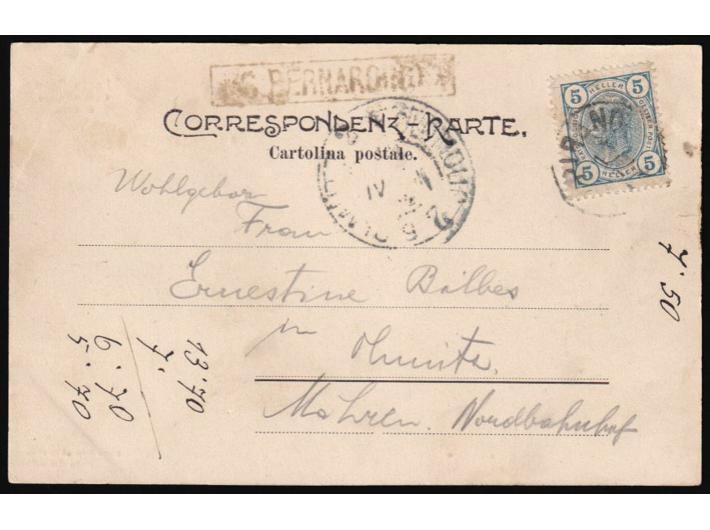 S. BERNARDINO
CORRESPONDENZ-KARTE.
Cartolina postale.
5 5
HELLER
5 5
HELLER
Wohlgebor
Frau
Ernestine Balbes
in Olmütz
Mähren. Nordbahnhof
7·50
13·70
7·
6·70
5·70